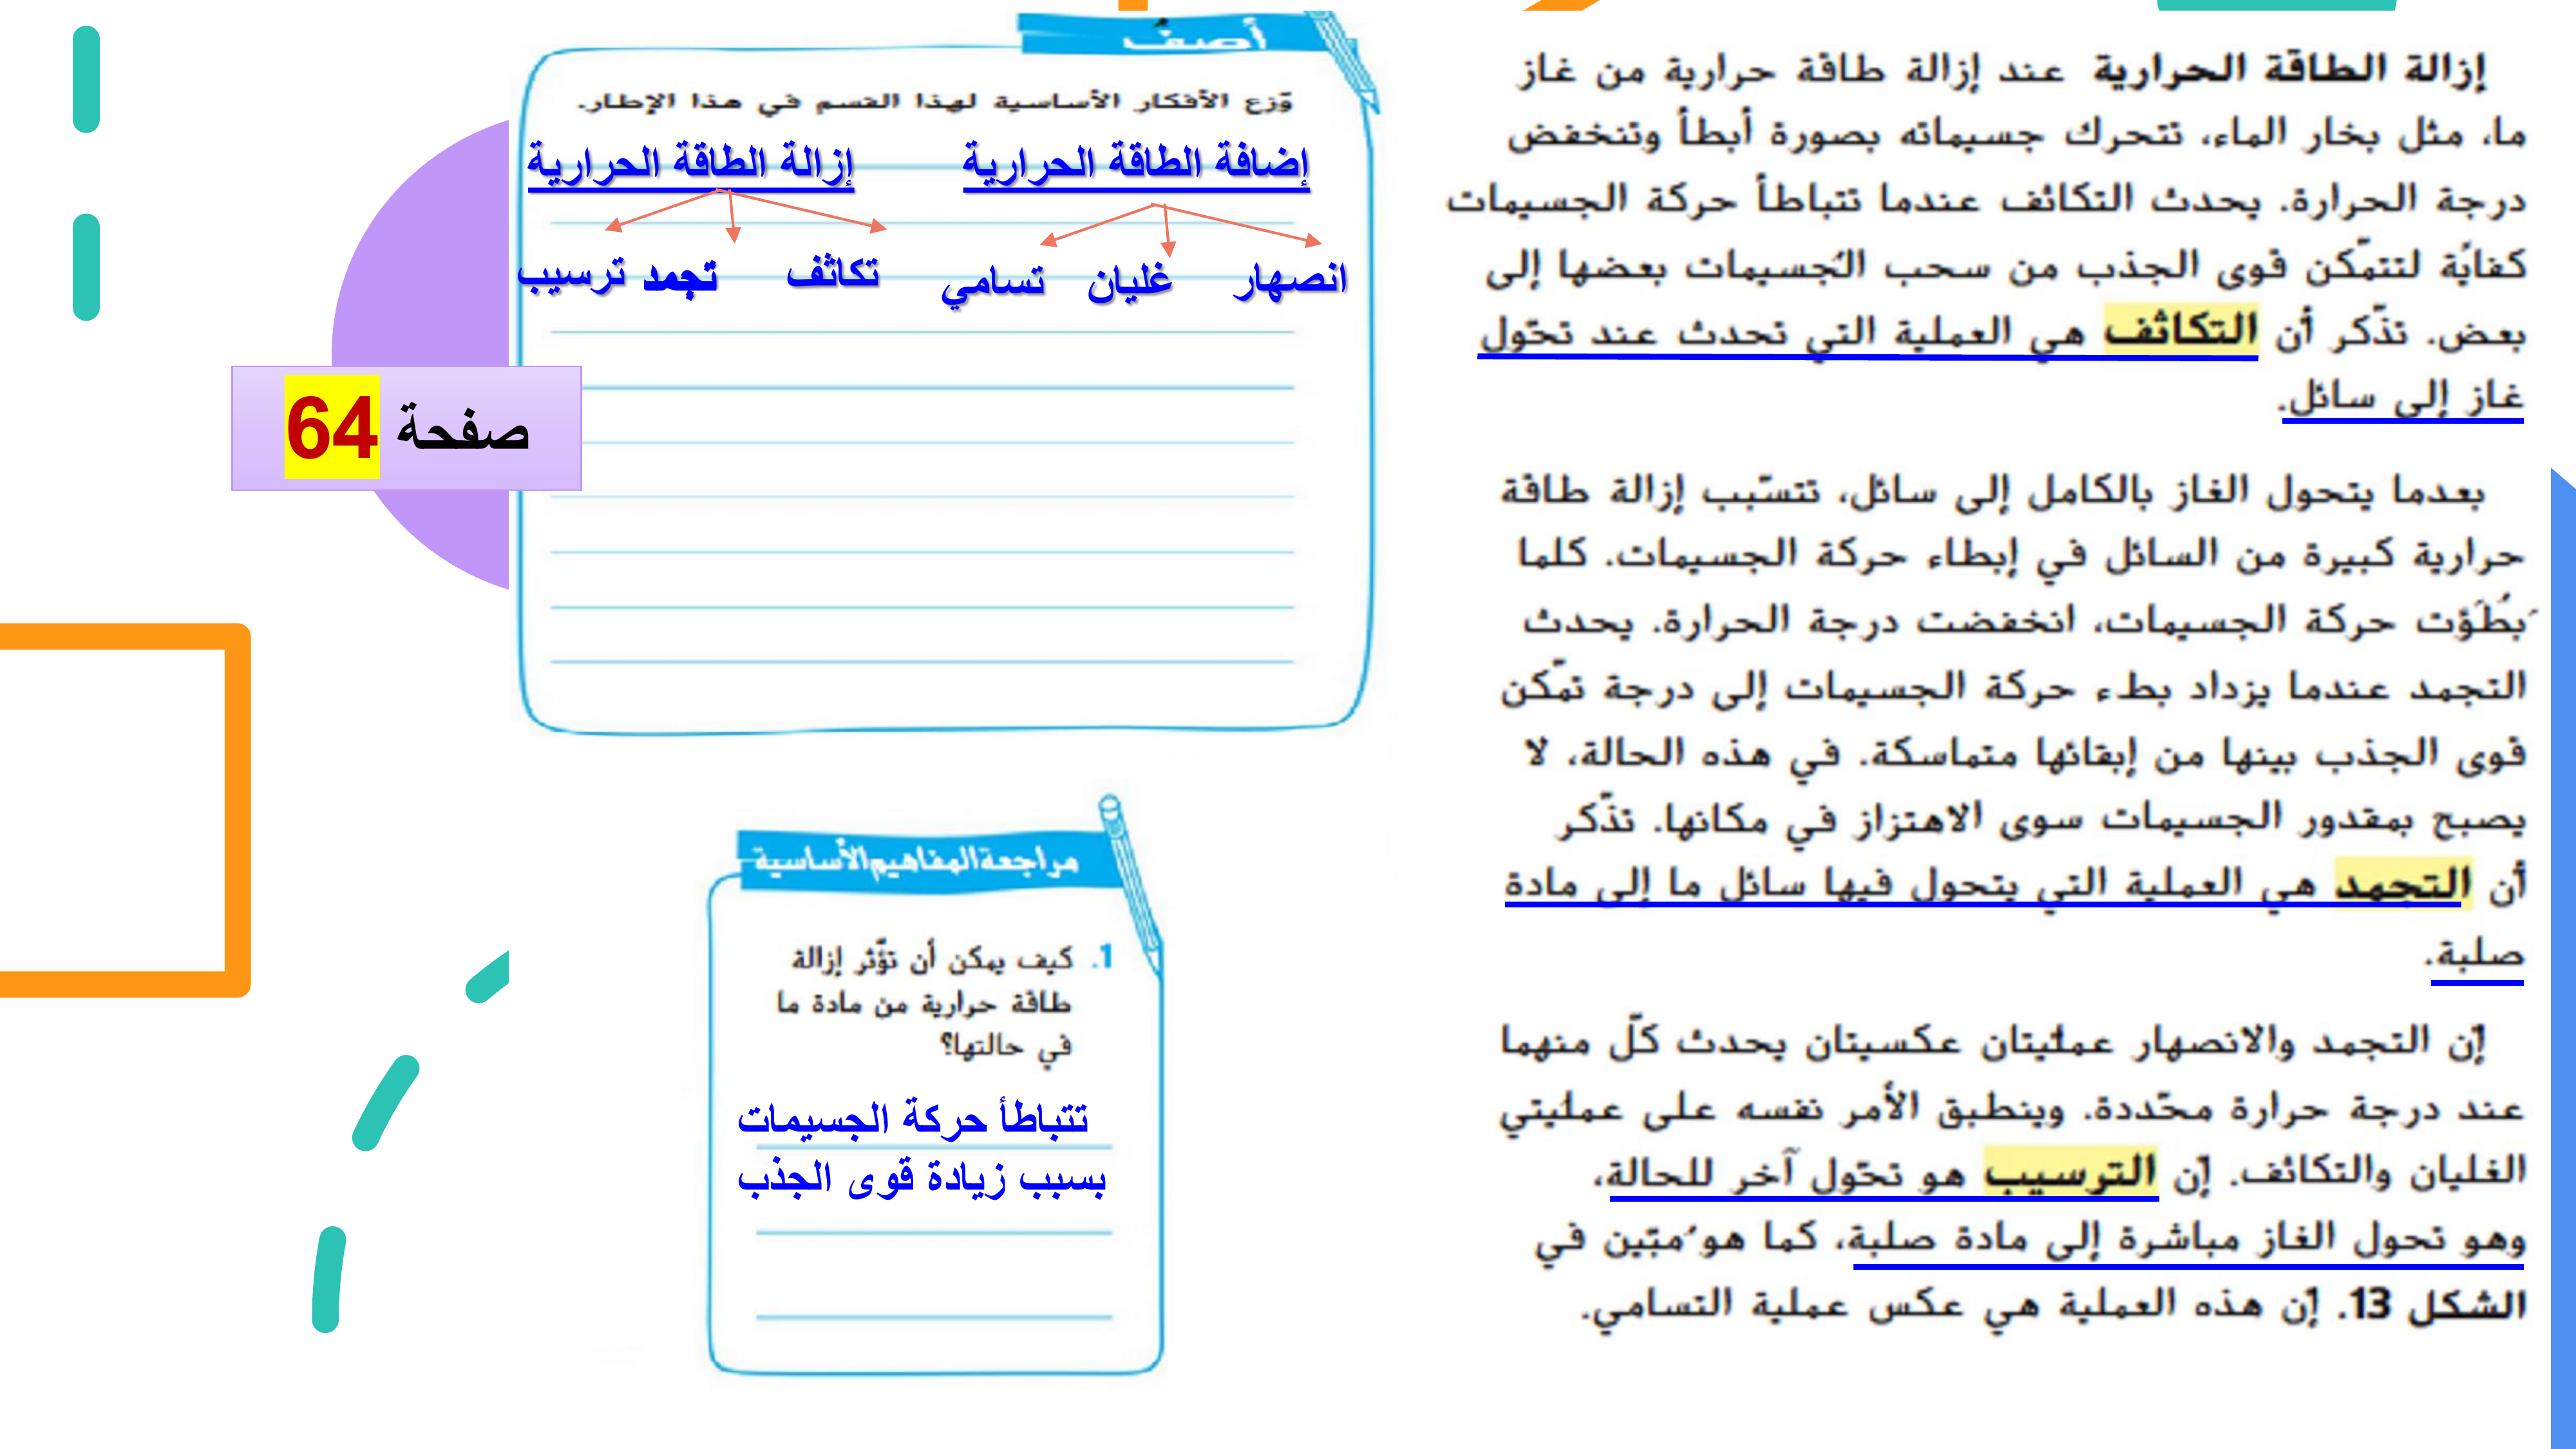 إزالة الطاقة الحرارية عند إزالة طاقة حرارية من غاز
ما، مثل بخار الماء، تتحرك جسيماته بصورة أبطأ وتنخفض
درجة الحرارة. يحدث التكاثف عندما تتباطأ حركة الجسيمات
كفايًة لتتمّكن قوى الجذب من سحب الُجسيمات بعضها إلى
بعض. تذّكر أن التكاثف هي العملية التي تحدث عند تحّول
غاز إلى سائل.
بعدما يتحول الغاز بالكامل إلى سائل، تتسّبب إزالة طاقة
حرارية كبيرة من السائل في إبطاء حركة الجسيمات. كلما
َبطُؤَت حركة الجسيمات، انخفضت درجة الحرارة. يحدث
التجمد عندما يزداد بطء حركة الجسيمات إلى درجة تمّكن
قوى الجذب بينها من إبقائها متماسكة. في هذه الحالة، لا
يصبح بمقدور الجسيمات سوى الاهتزاز في مكانها. تذّكر
أن التجمد هي العملية التي يتحول فيها سائل ما إلى مادة
صلبة.
إّن التجمد والانصهار عمليتان عكسيتان يحدث كلّ منهما
عند درجة حرارة محّددة. وينطبق الأمر نفسه على عمليتي
الغليان والتكاثف. إّن الترسيب هو تحّول آخر للحالة،
وهو تحول الغاز مباشرة إلى مادة صلبة، كما هو ُمبّين في
الشكل 13. إّن هذه العملية هي عكس عملية التسامي.
أصفُ
وّزع الأفكار الأساسية لهذا القسم في هذا الإطار.
إضافة الطاقة الحرارية إزالة الطاقة الحرارية
انصهار غليان تسامي تكاثف تجمد ترسيب
صفحة 64
مراجعة المفاهيم الأساسية
1. كيف يمكن أن تؤّثر إزالة
طاقة حرارية من مادة ما
في حالتها؟
تتباطأ حركة الجسيمات
بسبب زيادة قوى الجذب